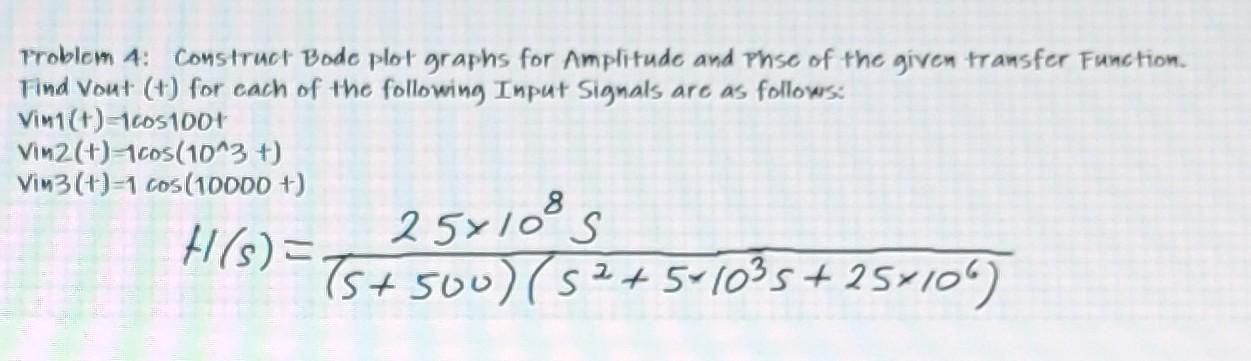 Problem 4: Construct Bode plot graphs for Amplitude and Phse of the given transfer Function.
Find Vout (t) for each of the following Input Signals are as follows:
Vin1(t)=1cos100t
Vin2(t)=1cos(10^3 t)
Vin3(t)=1 cos(10000 t)
H(s)= 25×10⁸ s / (s + 500)(s² + 5×10³s + 25×10⁶)